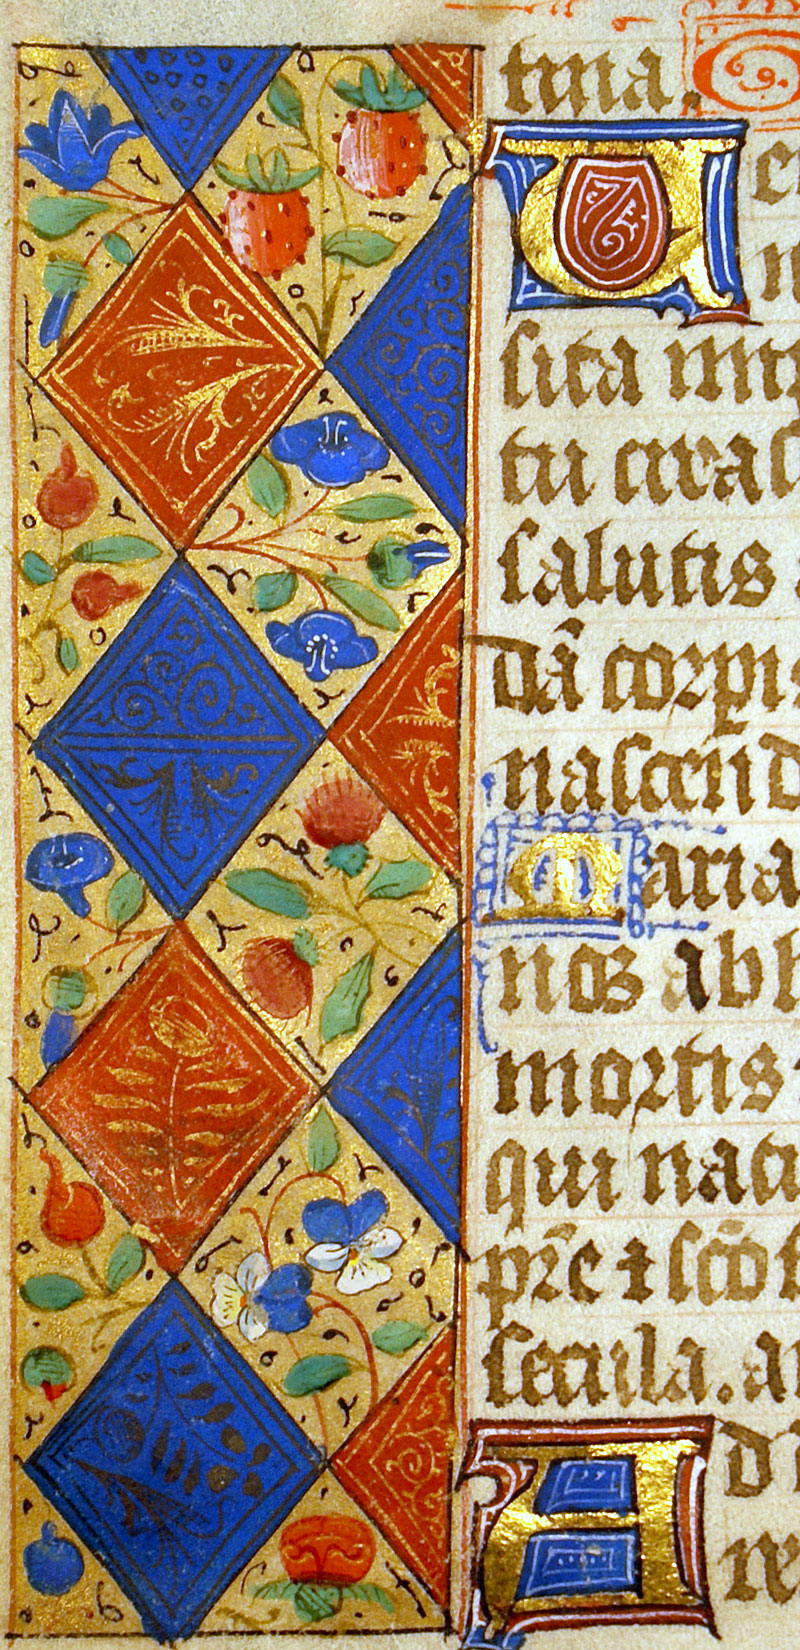 tina.
Ve
n
sita int
tu aras
salutis
dā corpis
nascend
Maria
nos ab h
mortis
qui nat
pr̄e ⁊ sc̄o s
secula. a
Ad
re